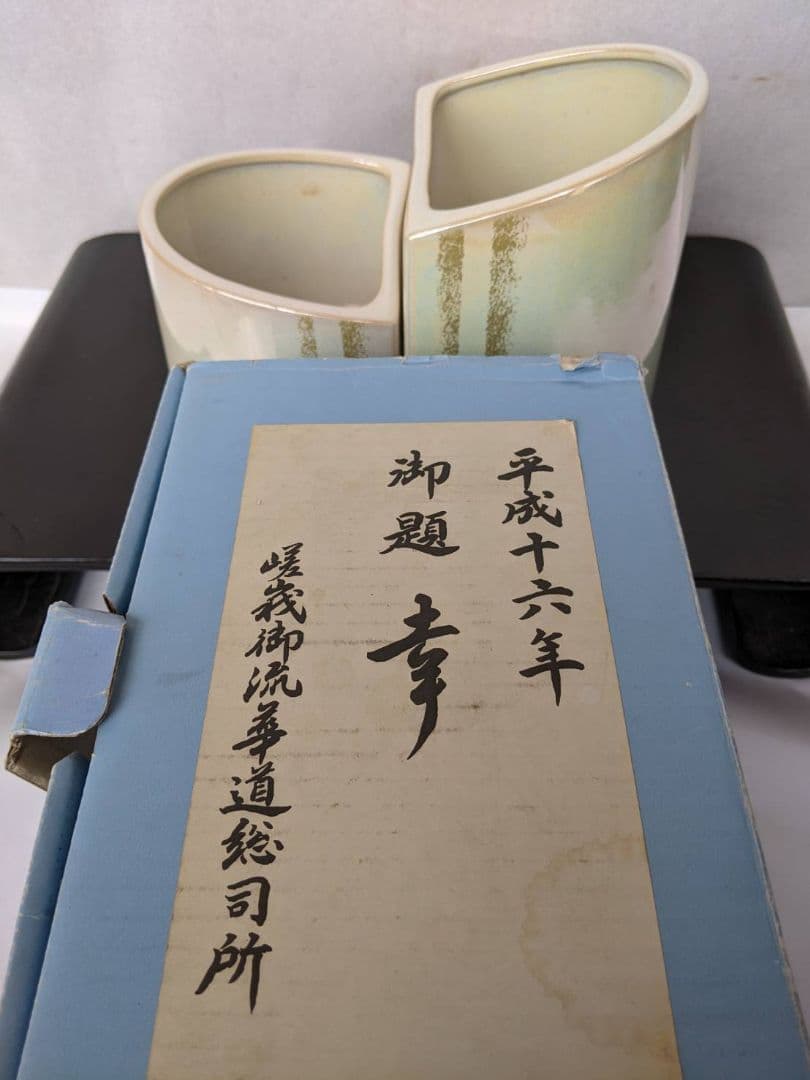 平成十六年
御題 幸
嵯峩御流華道総司所